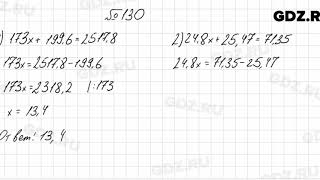 № 130
GDZ.RU
1) 173x + 199,6 = 2517,8
173x = 2517,8 - 199,6
173x = 2318,2 |:173
x = 13,4
Ответ: 13,4
2) 24,8x + 25,47 = 71,35
24,8x = 71,35 - 25,47